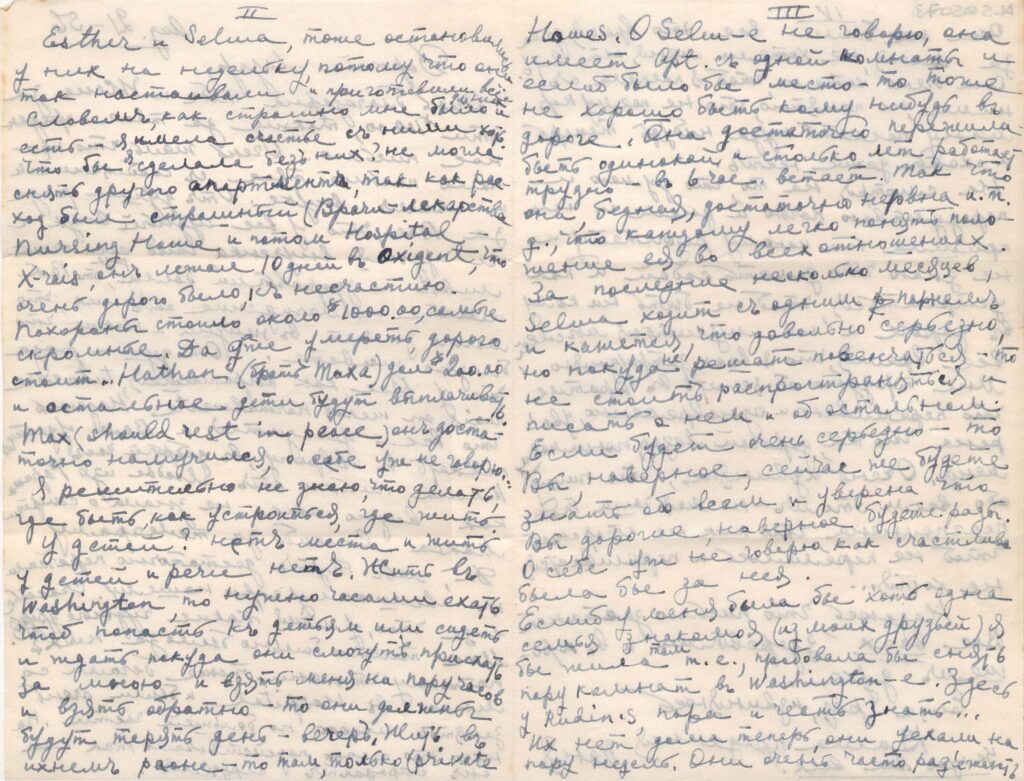 II
Esther и Selma, тоже остановились
у них на недельку, потому что они
так настаивали и приготовили все
Словомъ, как страшно мне было и
есть – я имела счастье съ ними хоть
Что бы я сделала безъ них? не могла
снять другого апартментъ, так как рас-
ход был страшный (Врачи – лекарства
Nursing Home и потом Hospital –
X-rais, онъ лежал 10 дней въ oxigent, что
очень дорого было, къ несчастию.
Похороны стоило около $1000,00, самые
скромные. Да уже умереть дорого
стоит... Nathan (братъ Maxa) дал $200.00
и остальное дети будут выплачивать
Max (should rest in peace) онъ доста-
точно намучился, о себе уж не говорю...
Я решительно не знаю, что делать,
где быть, как устроиться, где жить
У детей? нетъ места и жить
у детей и речи нетъ. Жить въ
Washington, то нужно часами ехать
чтоб попасть къ детьям или сидеть
и ждать покуда они смогутъ приехать
за мною и взять меня на пару часов
и взять обратно – то они должны
будут терять день – вечеръ. Жить въ
ихнемъ раоне – то там только (private
III
Homes. О Selm-е не говорю, она
имеет Apt. съ одной комнаты и
еслиб было бы место – то тоже
не хорошо быть кому нибудь въ
дороге. Она достаточно пережила
быть одинокой и столько лет работает
трудно – въ 6 час. встает. Так что
она, бедная, достаточно нервна и.т.
д., что каждому легко понять поло-
жение ея во всех отношениях.
За последние несколько месяцев,
Selma ходит съ одним парнемъ
и кажется, что довольно серьезно,
но покуда не решат повенчаться – то
не стоитъ распространяться и
писать о нем и об остальном
Если будет очень серьезно – то
Вы, наверное, сейчас же будете
знать об всем и уверена что
Вы, дорогие, наверное будете рады.
О себе уж не говорю как счастлива
была бы за нея.
Еслиб у меня была бы хоть одна
семья знакомоя (из моих друзьей) я
бы жила там т.е., пробовала бы снять
пару комнат въ Washington-е. Здесь
у Rudin-s пора и честь знать...
Их нет дома теперь, они уехали на
пару недель. Они очень часто